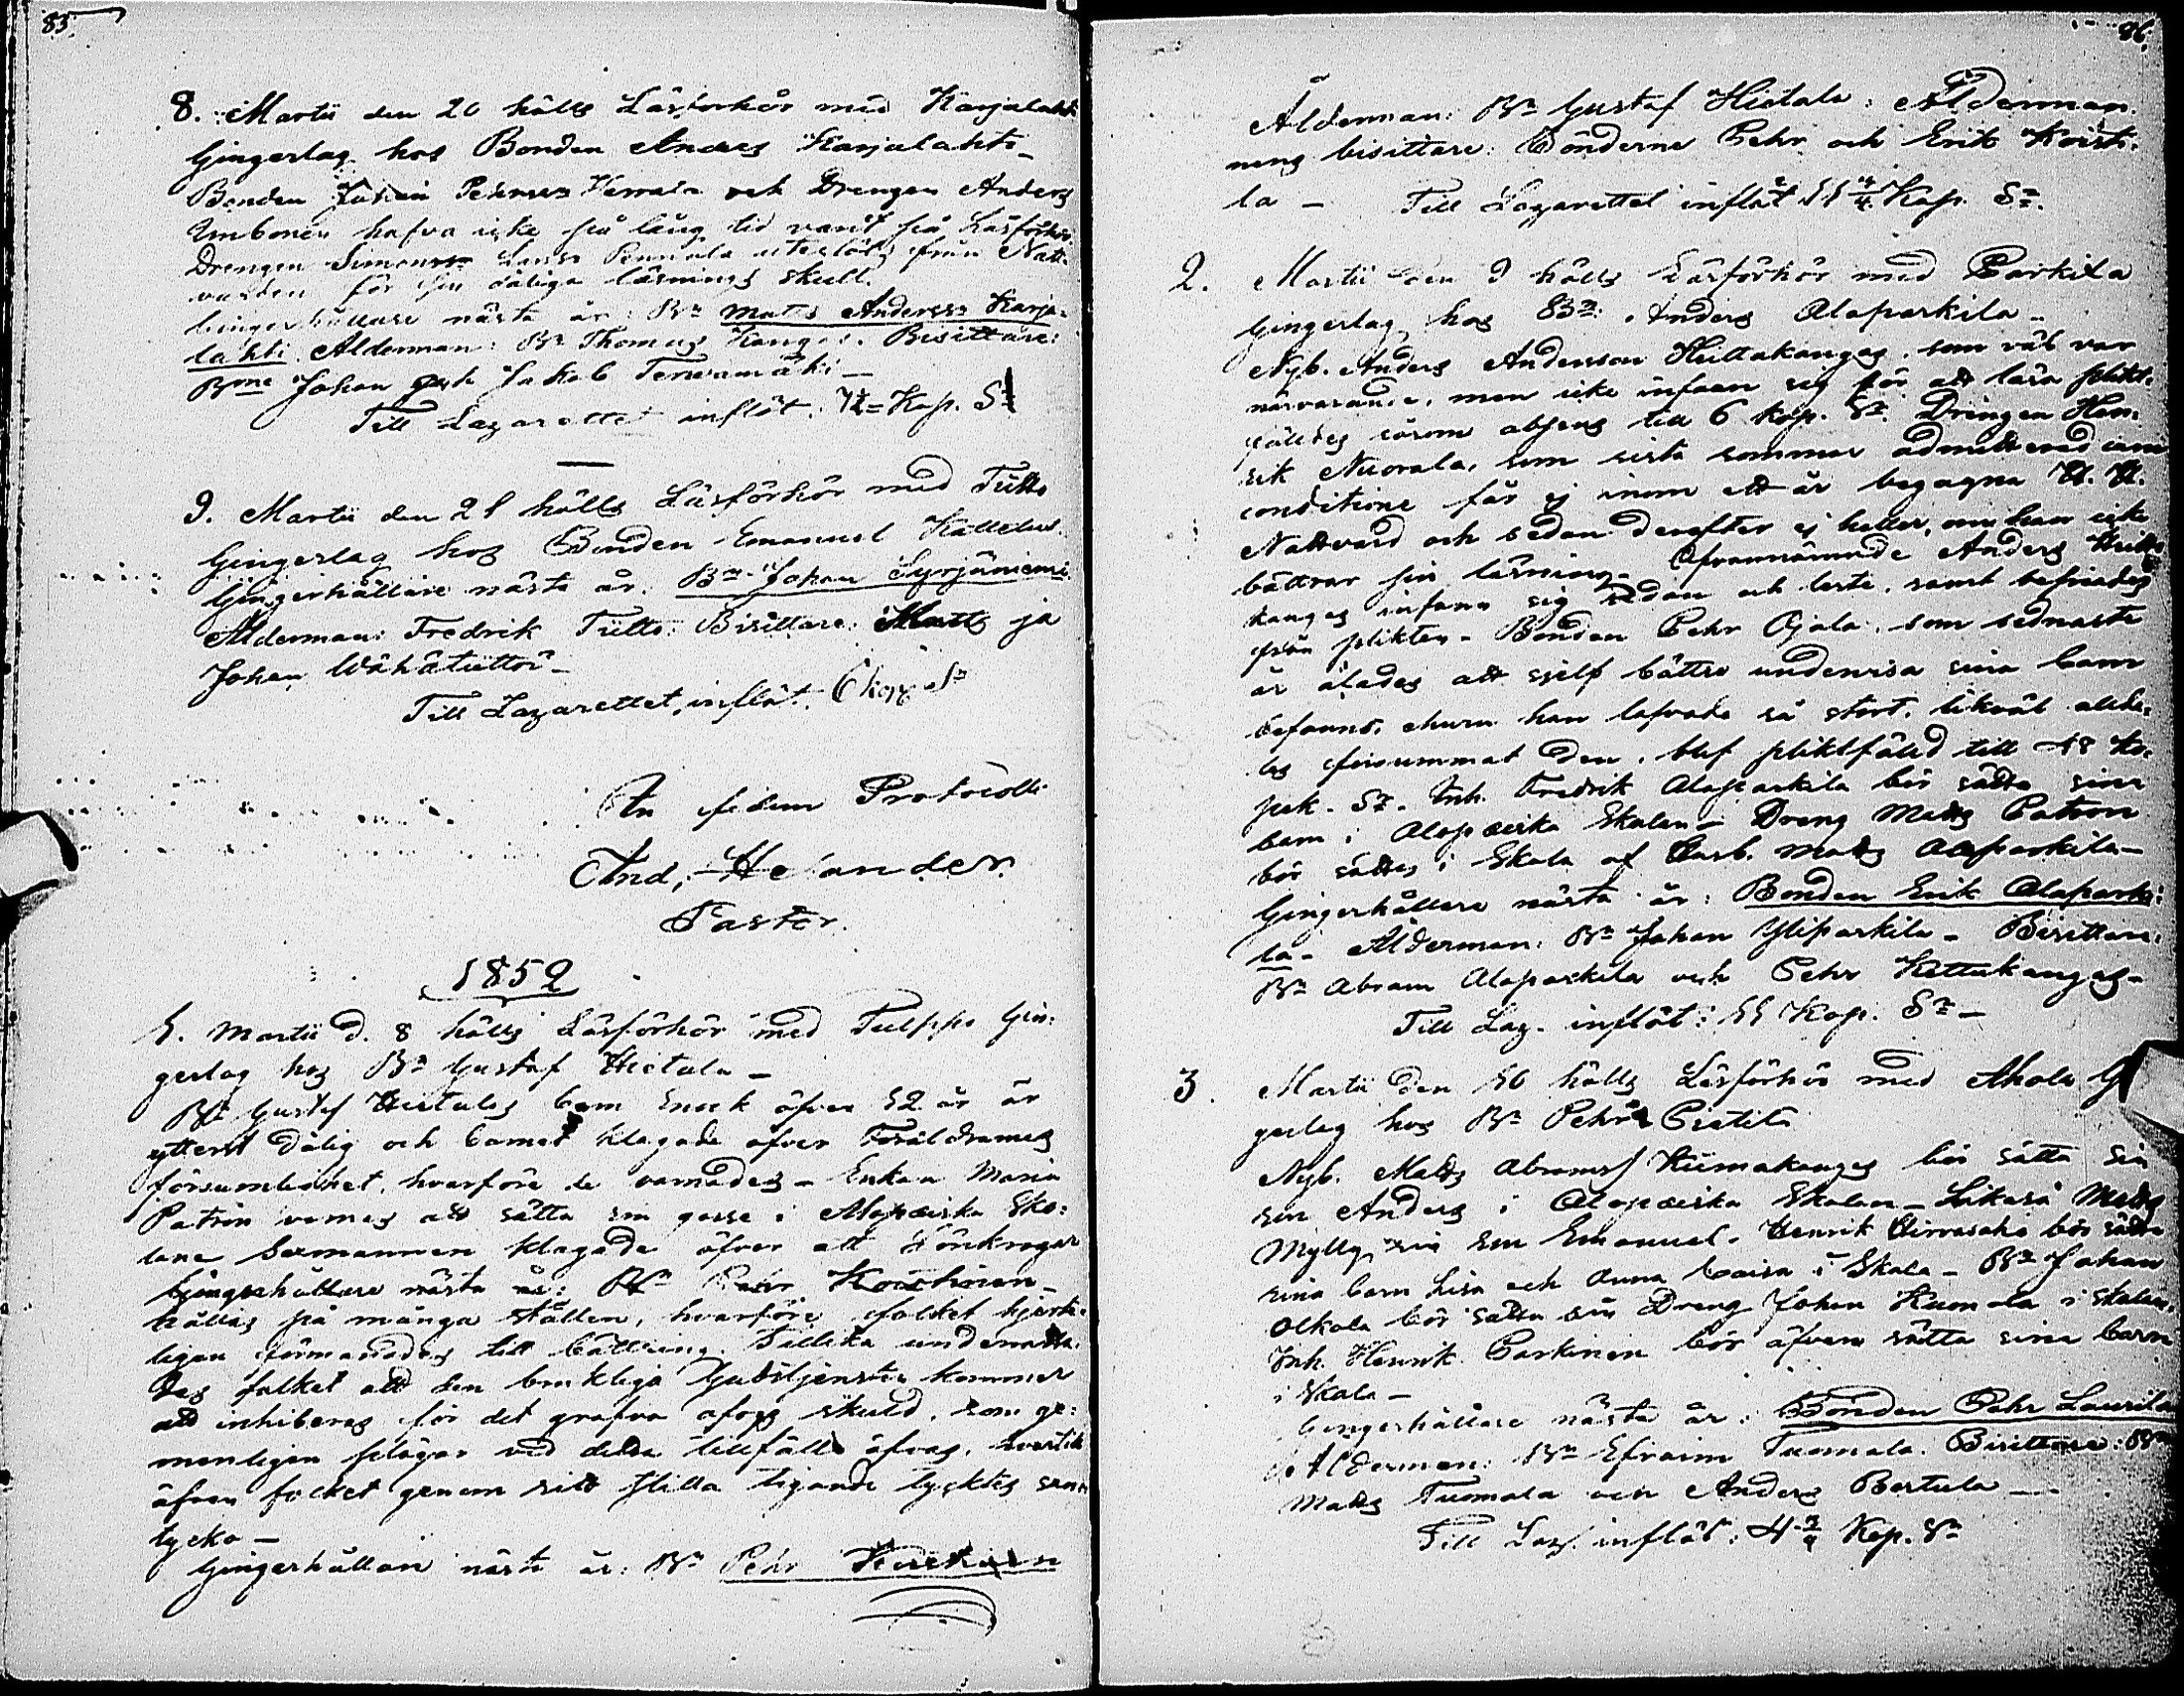 85.
8. Martii den 26 hölls Läsförhör med Karjalahti
Gingerlag hos Bonden Anders Karjalahti -
Bonden Johan Pehrsson och Drengen Anders
hafva icke på lång tid varit på Läsförhör.
Drengen Simon Pennala uteslöts från Natt-
varden för sin dåliga läsnings skull.
Gingerhållare nästa år: Bn Matts Anderss. Karja-
lahti. Ålderman: Bn Thomas Kangas. Bisittare:
Bne Johan och Jakob Terwamäki -
Till Lazarettet inflöt: Kop. Sr
9. Martii den 28 hölls Läsförhör med Tütto
Gingerlag hos Bonden Emanuel
Gingerhållare nästa år: Bn Johan Syrjäniemi.
Ålderman: Fredrik Tütto. Bisittare: Matts ja
Johan Wähätüttö -
Till Lazarettet inflöt: 6 Kop. Sr
In fidem Protocolli
And. Helander.
Pastor.
1852
1. Martii d. 8 hölls Läsförhör med Tulppo Gin-
gerlag hos Bn Gustaf Hietala -
Bn Gustaf Hietalas barn Enok öfver 12 år är
ytterst dålig och barnet klagade öfver Föräldrarnes
försumlighet, hvarföre de varnades - Enkan Maria
Patron varnas att sätta sin gosse i Alapæiska Sko-
lan. Sexmannen klagade öfver att Lönkrogar
Gingerhållare nästa år: Bn Pehr Koiskinen -
hållas på många ställen, hvarföre folket hjert-
ligen förmanades till bättring. Tillika underrätta-
des folket att den brukliga Gudstjensten kommer
att inhiberas för det grofva ofogs skuld, som ge-
menligen plägar vid detta tillfälle öfvas, hvartill
äfven folket genom sitt stilla tigande tycktes sam-
tycka -
Gingerhållare nästa år: Bn Pehr
86.
Ålderman: Bn Gustaf Hietala: Ålderman-
nens bisittare: Bönderne Pehr och Erik Koisti-
la - Till Lazarettet inflöt 11 Kop. Sr.
2. Martii den 9 hölls Läsförhör med Parkila
Gingerlag hos Bn Anders Alaparkila -
Nyb. Anders Andersson Huttakangas, som väl var
närvarande, men icke infann sig för att läsa plikt-
fälldes såsom absens till 6 kop. Sr. Drengen Hen-
rik Nuorala, som sista sommar admitterad cum
conditione får ej inom ett år begagna H. H.
Nattvard och sedan derefter ej heller, om han icke
bättrar sin läsning. Ofvannämnde Anders Hutta-
kangas infann sig sedan och läste, samt befriades
från plikten - Bonden Pehr Ojala, som sednaste
år ålades att sjelf bättre undervisa sina barn
befanns, ehuru han lofvade så stort, likväl allde-
les försummat den, blef pliktfälld till 48 ko-
pek. Sr. Inh. Fredrik Alaparkila bör sätta sina
barn i Alapæiska Skolan - Dreng Matts Patron
bör sättas i Skola af Husb. Matts Alaparkila -
Gingerhållare nästa år: Bonden Erik Alaparki-
la - Ålderman: Bn Johan Yliparkila - Bisittare:
Bn Abram Alaparkila och Pehr Huttakangas -
Till Laz. inflöt: 11 Kop. Sr -
3. Martii den 10 hölls Läsförhör med Ahola G
gerlag hos Bn Pehr Pietilä
Nyb. Matts Abramss. Kiimakangas bör sätta sin
son Anders i Alapæiska Skolan - Likaså Matts
Mylly sin son Emanuel. Henrik Hirvasaho bör sätta
sina barn Lisa och Anna Caisa i Skola - Bn Johan
Alkola bör sätta sin Dreng Johan Kumala i skolan,
Inh. Henrik Parkinen bör äfven sätta sina barn
i Skola -
Gingerhållare nästa år: Bonden Pehr Laurila
Ålderman: Bn Efraim Tuomala. Bisittare: Bn
Matts Tuomala och Anders Bertula -
Till Laz. inflöt: 4 Kop. Sr